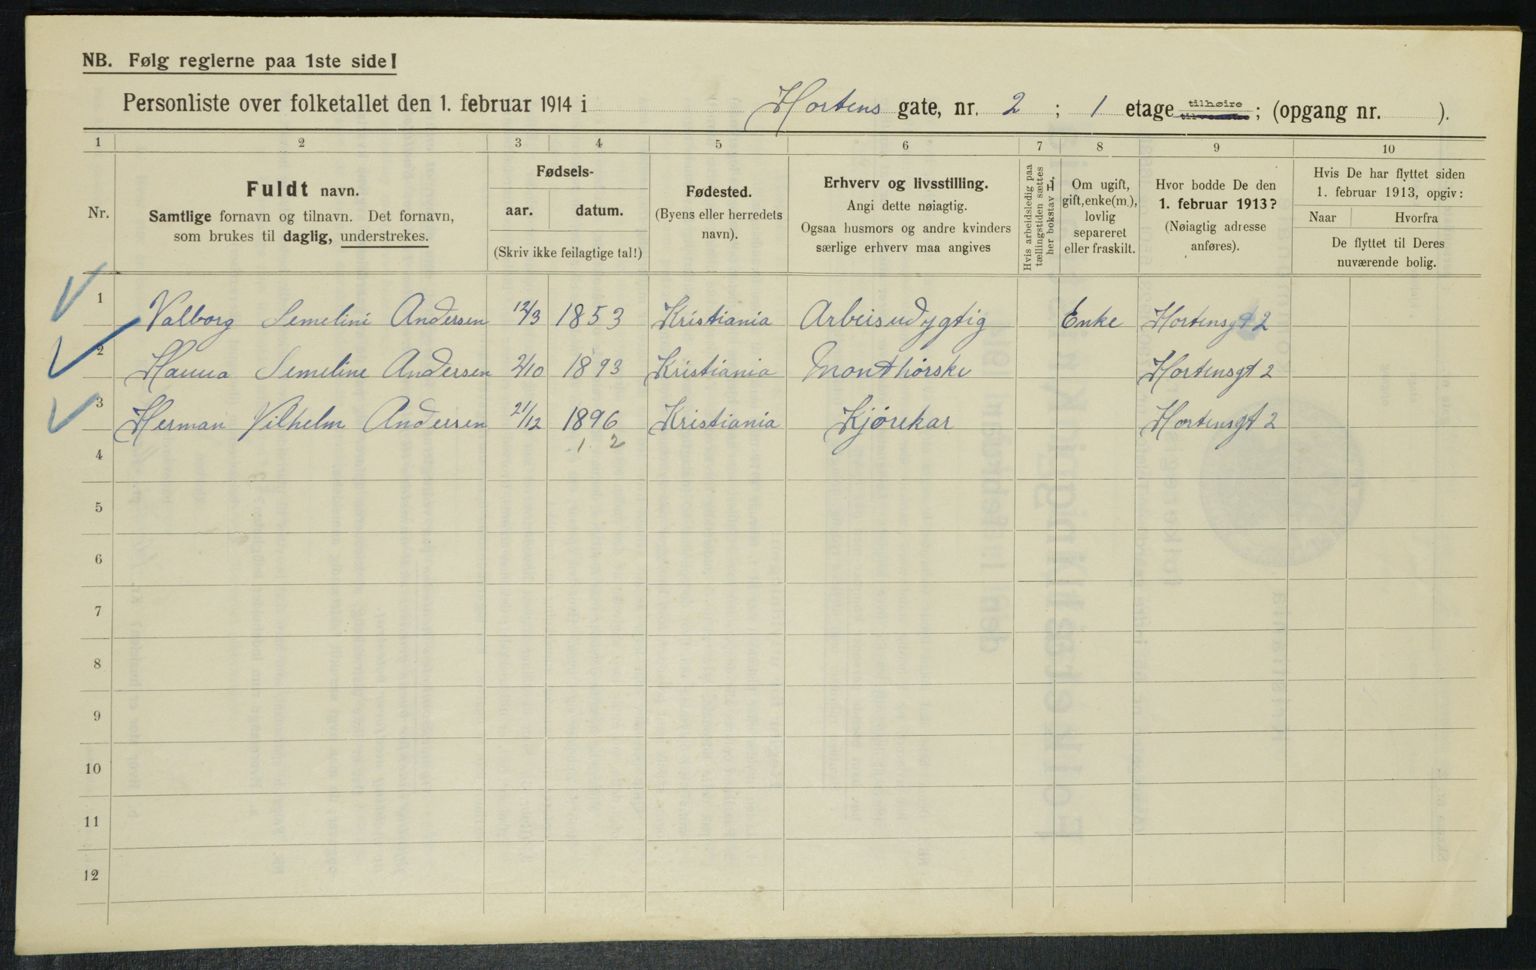 NB. Følg reglerne paa 1ste side!
Personliste over folketallet den 1. februar 1914 i Hortens gate, nr. 2 ; 1 etage tilhøire ; (opgang nr. ).
1 2 3 4 5 6 7 8 9 10
Nr.
Fuldt navn.
Samtlige fornavn og tilnavn. Det fornavn,
som brukes til daglig, understrekes.
Fødsels-
aar. datum.
(Skriv ikke feilagtige tal!)
Fødested.
(Byens eller herredets
navn).
Erhverv og livsstilling.
Angi dette nøiagtig.
Ogsaa husmors og andre kvinders
særlige erhverv maa angives
Hvis arbeidsledig paa
tællingstiden sættes
her bokstav L.
Om ugift,
gift, enke(m.),
lovlig
separeret
eller fraskilt.
Hvor bodde De den
1. februar 1913?
(Nøiagtig adresse
anføres).
Hvis De har flyttet siden
1. februar 1913, opgiv:
Naar Hvorfra
De flyttet til Deres
nuværende bolig.
1 Valborg Semelini Andersen 12/3 1853 Kristiania Arbeisudygtig Enke Hortensgt 2
2 Hanna Semeline Andersen 2/10 1893 Kristiania Hortensgt 2
3 Herman Vilhelm Andersen 21/12 1896 Kristiania Kjørekar Hortensgt 2
1 2
4
5
6
7
8
9
10
11
12